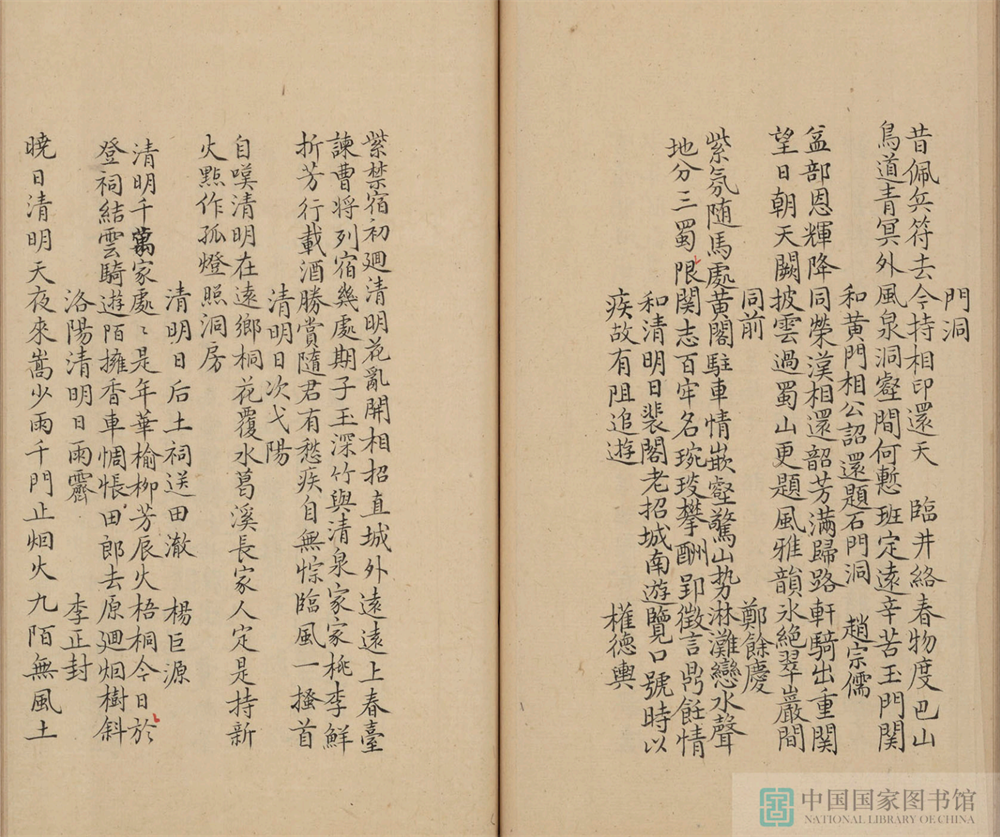 門洞
昔佩兵符去今持相印還天　臨井絡春物度巴山
鳥道青冥外風泉洞壑間何慙班定遠辛苦玉門関
和黄門相公詔還題石門洞　趙宗儒
益部恩輝降同榮漢相還韶芳滿歸路軒騎出重関
望日朝天闕披雲過蜀山更題風雅韻永絶翠巖間
同前　鄭餘慶
紫氛随馬處黄閣駐車情嵌壑驚山势淋灘戀水聲
地分三蜀限関志百牢名琬琰攀酬郢徵言鼎飪情
和清明日裴閣老招城南游覽口號時以
疾故有阻追遊　權德輿
紫禁宿初廻清明花亂開相招直城外遠遠上春臺
諫曹将列宿幾處期子玉深竹與清泉家家桃李鮮
折芳行載酒勝賞隨君有愁疾自無悰臨風一搔首
清明日次弋陽
自嘆清明在遠鄉桐花覆水葛溪長家人定是持新
火點作孤燈照洞房
清明日后土祠送田澈　楊巨源
清明千萬家處〻是年華榆柳芳辰火梧桐今日於
登祠結雲騎遊陌擁香車惆悵田郎去原廻烟樹斜
洛陽清明日雨霽　李正封
曉日清明天夜來嵩少雨千門止烟火九陌無風土
中国国家图书馆
NATIONAL LIBRARY OF CHINA